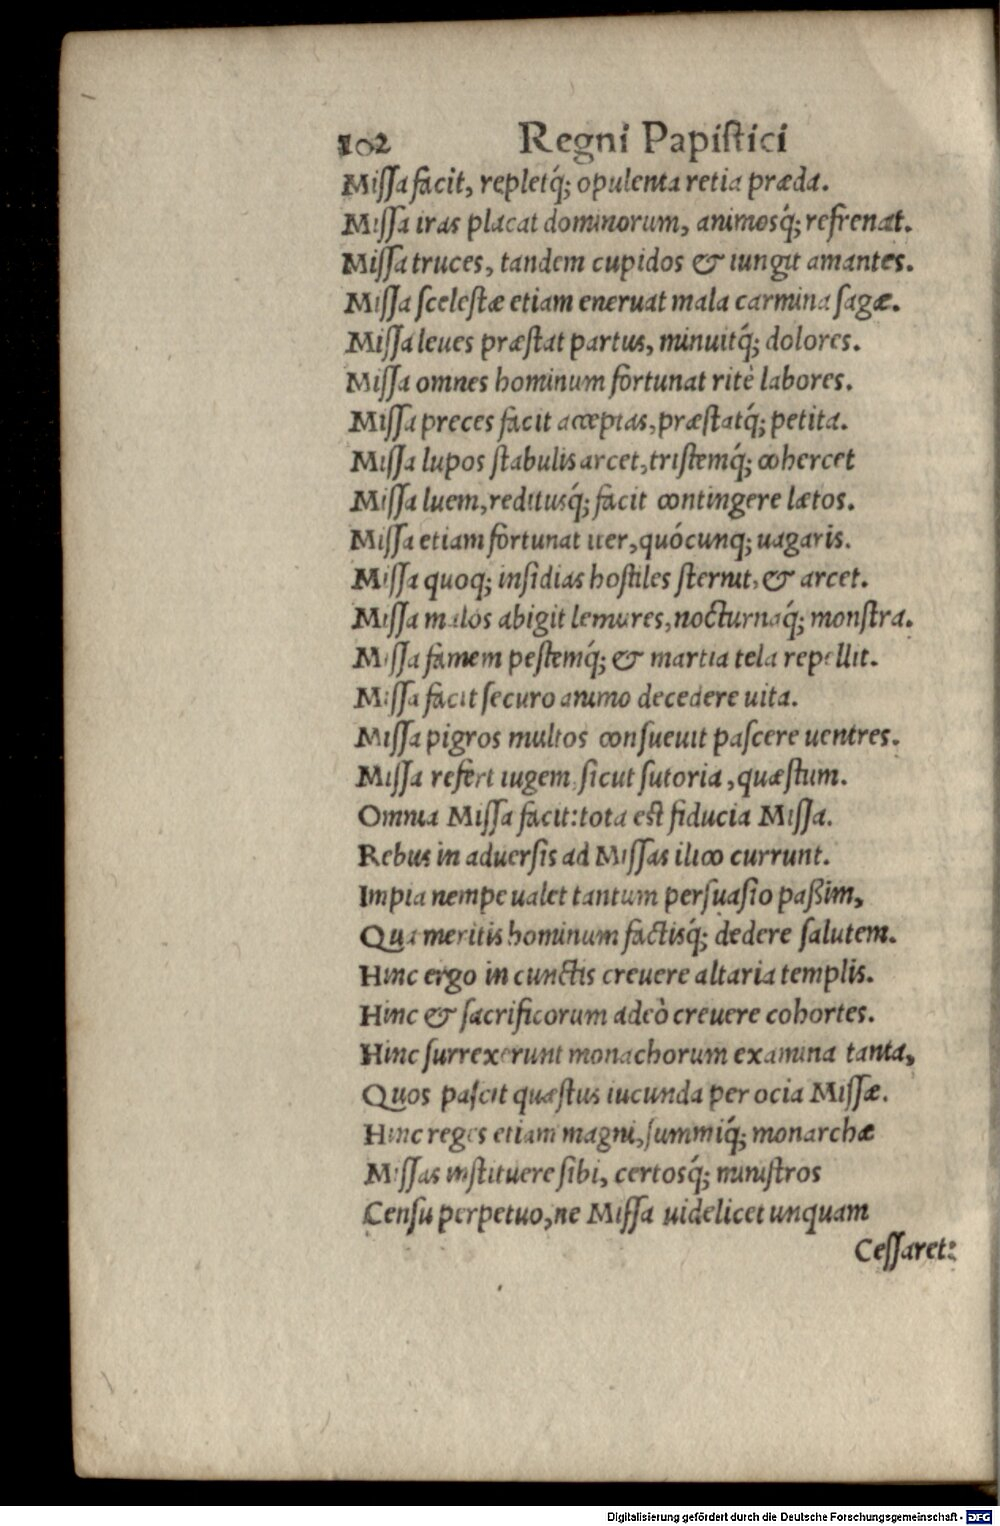 102 Regni Papiſtici
Miſſa facit, repletq́; opulenta retia præda.
Miſſa iras placat dominorum, animosq́; refrenat.
Miſſa truces, tandem cupidos & iungit amantes.
Miſſa ſceleſtæ etiam eneruat mala carmina ſagæ.
Miſſa leues præſtat partus, minuitq́; dolores.
Miſſa omnes hominum fortunat ritè labores.
Miſſa preces facit acceptas, præſtatq́; petita.
Miſſa lupos ſtabulis arcet, triſtemq́; cohercet
Miſſa luem, reditusq́; facit contingere lætos.
Miſſa etiam fortunat iter, quócunq; uagaris.
Miſſa quoq; inſidias hoſtiles ſternit, & arcet.
Miſſa malos abigit lemures, nocturnaq́; monſtra.
Miſſa famem peſtemq́; & martia tela repellit.
Miſſa facit ſecuro animo decedere uita.
Miſſa pigros multos conſueuit paſcere uentres.
Miſſa refert iugem, ſicut ſutoria, quæſtum.
Omnia Miſſa facit: tota eſt fiducia Miſſa.
Rebus in aduerſis ad Miſſas ilico currunt.
Impia nempe ualet tantum perſuaſio paßim,
Qua meritis hominum factisq́; dedere ſalutem.
Hinc ergo in cunctis creuere altaria templis.
Hinc & ſacrificorum adeò creuere cohortes.
Hinc ſurrexerunt monachorum examina tanta,
Quos paſcit quæſtus iucunda per ocia Miſſæ.
Hinc reges etiam magni, ſummiq́; monarchæ
Miſſas inſtituere ſibi, certosq́; miniſtros
Cenſu perpetuo, ne Miſſa uidelicet unquam
Ceſſaret:
Digitalisierung gefördert durch die Deutsche Forschungsgemeinschaft - DFG